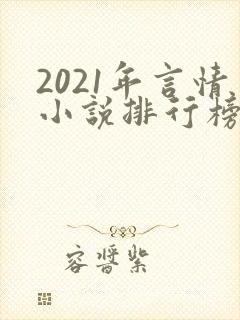 2021年言情
小說排行榜
容晋紫